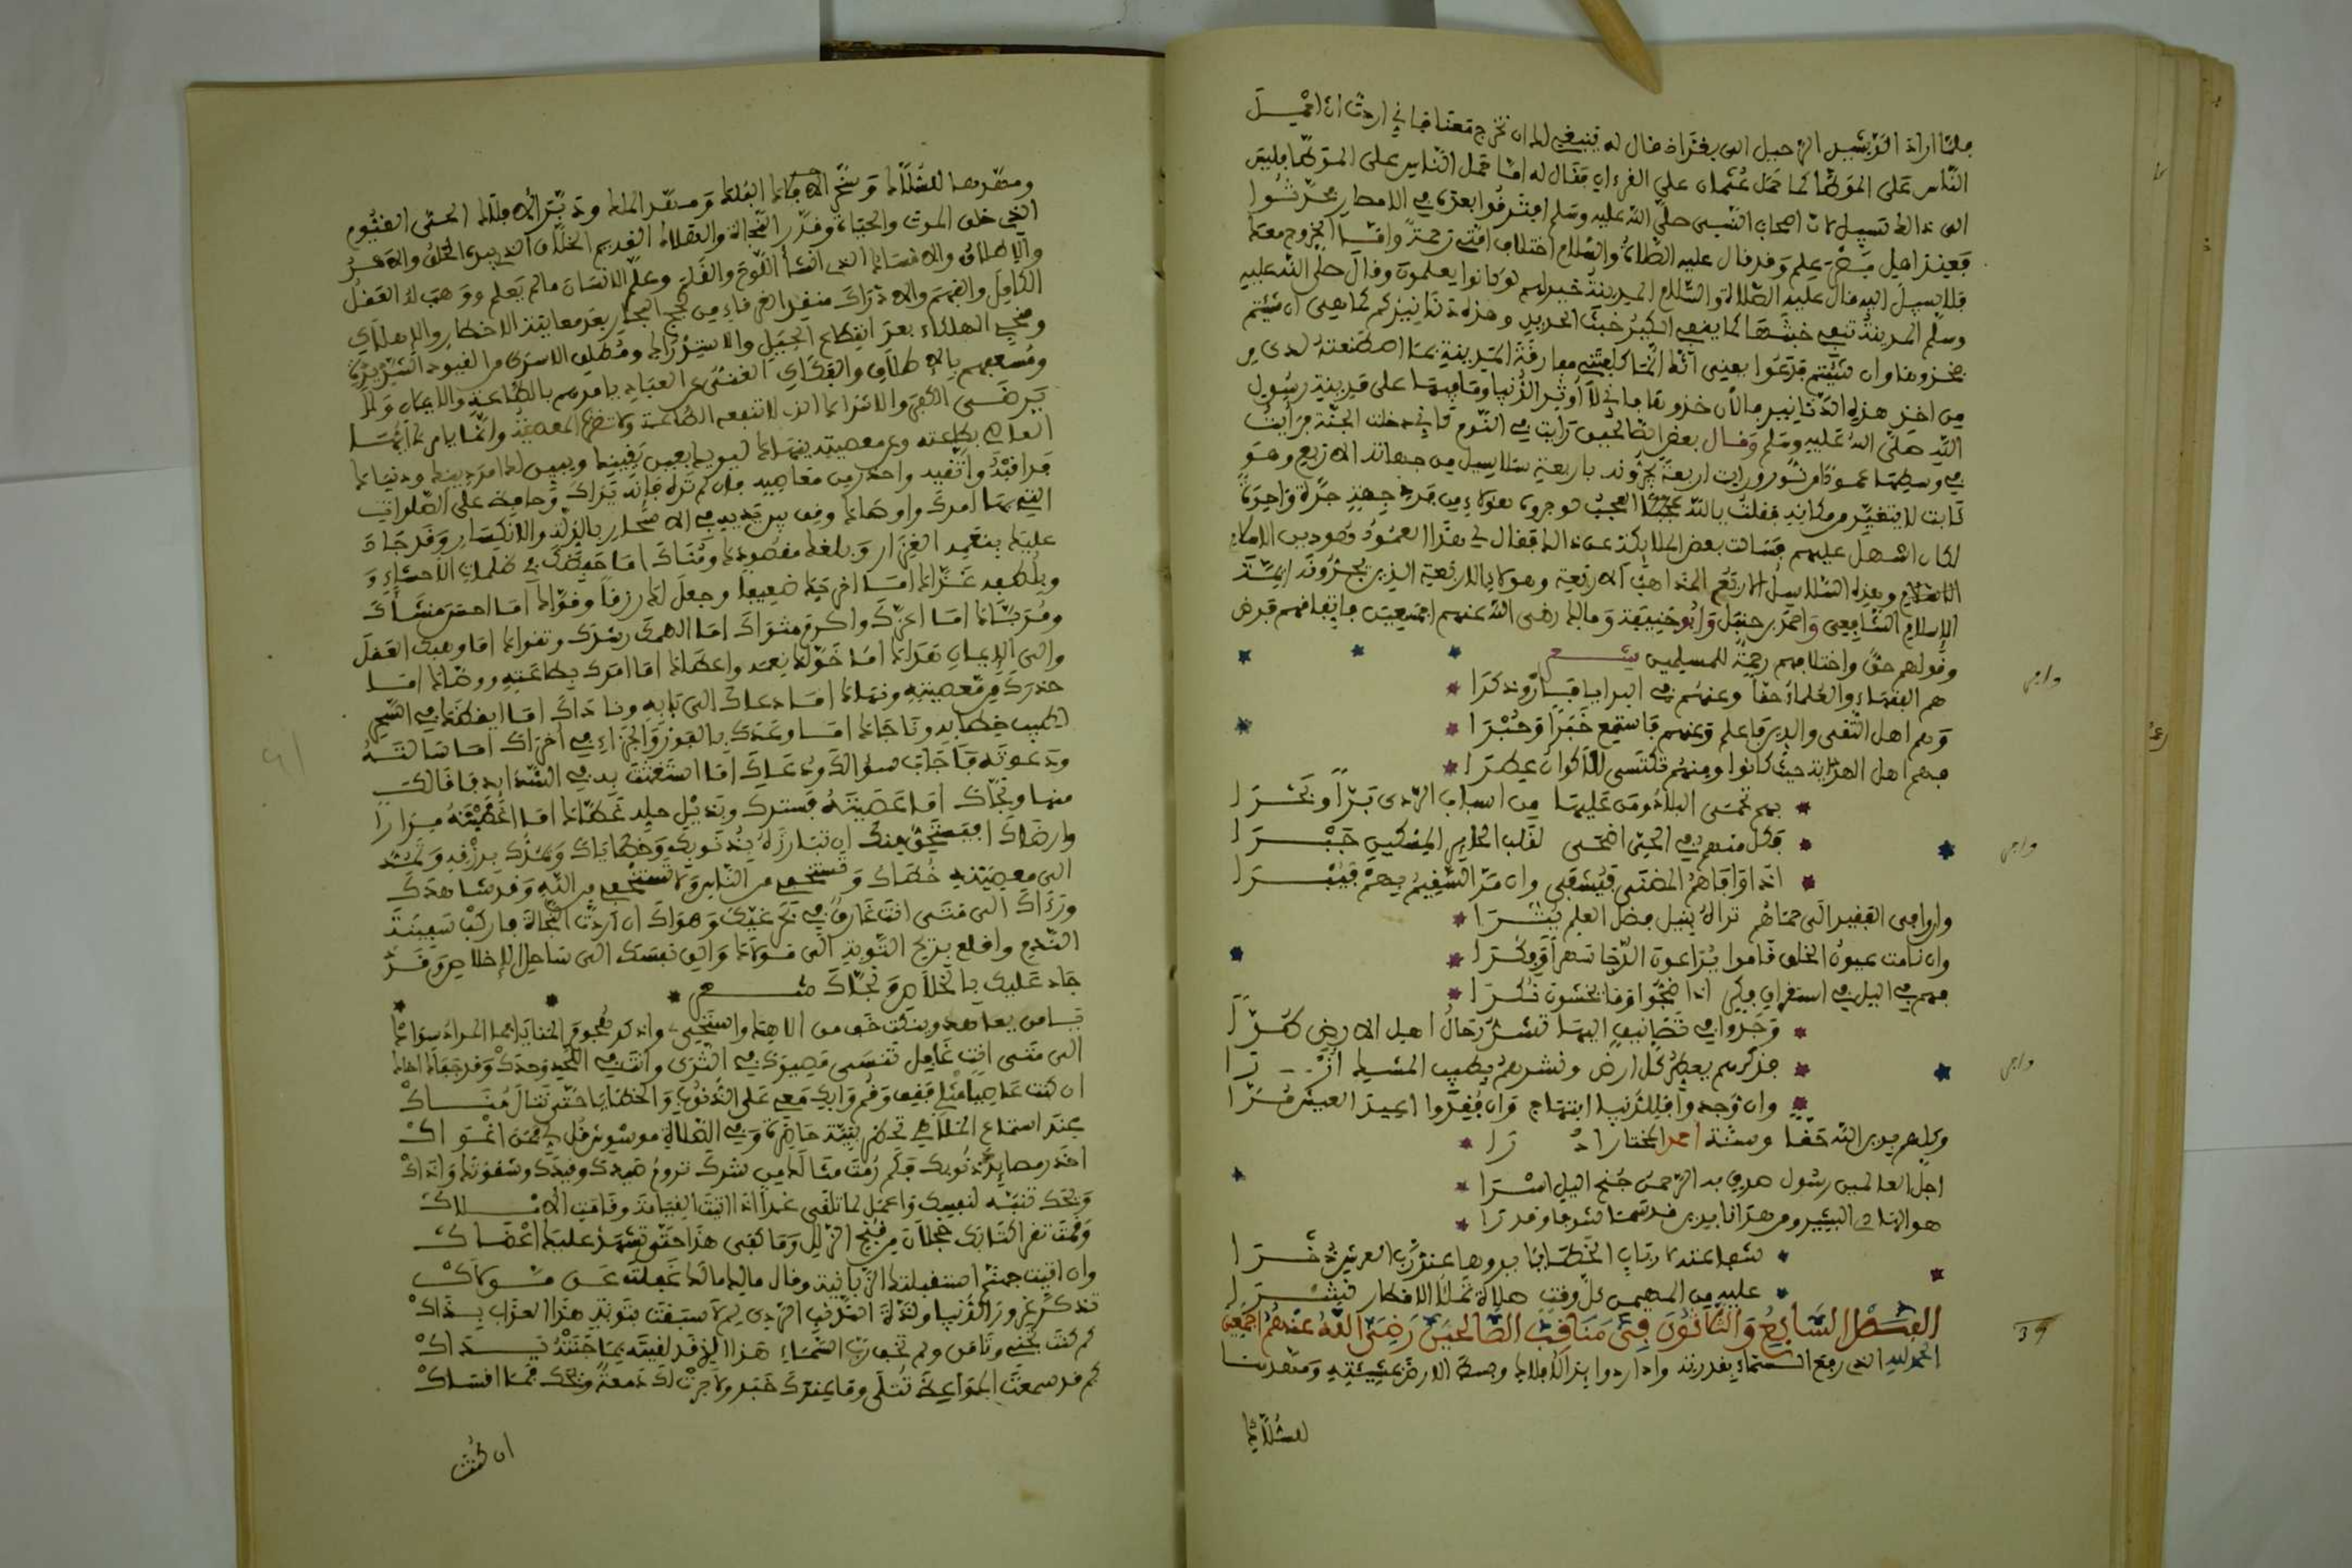 فلما اراد الرشيد الرحيل الى بغداد قال له ينبغي لك ان تخرج معنا فاني اردت ان احمل
الناس على الموطأ كما حمل عثمان على القرءان فقال له اما حمل الناس على الموطأ فليس
الى ذالك سبيل لان اصحاب النبي صلى الله عليه وسلم افترقوا بعده في الامصار فحدثوا
فعند اهل مصر علم وقد قال عليه الصلاة والسلام اختلاف امتي رحمة واما الخروج معك
فلا سبيل اليه قال عليه الصلاة والسلام المدينة خير لهم لو كانوا يعلمون وقال صلى الله عليه
وسلم المدينة تنفي خبثها كما ينفي الكير خبث الحديد وهذه دنانيركم كما هي ان شئتم
فخذوها وان شئتم فدعوا يعني انك انما كلفتني مفارقة المدينة بما اصطنعته لدي من
من اخذ هذه الدنانير فالان خذوها فاني لا أوثر الدنيا وما فيها على مدينة رسول
الله صلى الله عليه وسلم وقال بعض الصالحين رايت في النوم كاني دخلت الجنة فرأيت
في وسطها عمودا من نور ورايت اربعة يجرونه باربعة سلاسل من جهاته الاربع وهو
ثابت لا يتغير من مكانه فقلت يالله العجب لو جروه هؤلاء من جهة جرة واحدة
لكان اسهل عليهم فسالت بعض الملائكة عن ذالك فقال لي هذا العمود هو دين الاسلام
وهذه السلاسل الاربع المذاهب الاربعة وهؤلاء الاربعة الذين يجرونه ايمة
الاسلام الشافعي واحمد بن حنبل وابو حنيفة ومالك رضي الله عنهم اجمعين فاتفاقهم فرض
وقولهم حق واختلافهم رحمة للمسلمين شعر
هم الفقهاء والعلماء حقا وعنهم في البرايا فسار وذكرا
وهم اهل التقى والدين فاعلم وعنهم فاستمع خبرا وخبرا
فهم اهل الهداية حيث كانوا ومنهم تكتسي الاكوان عطرا
بهم تحمى البلاد ومن عليها من اسباب الردى برا وبحرا
فكل منهم في الحي اضحى لقلب الكاسر المسكين جبرا
اذا وافاهم المضنى فيشفى وان مر السقيم بهم فيبرا
وان وافى الفقير الى حماهم تراه بنيل فضل العلم يثرا
وان نامت عيون الخلق قاموا يراعون الدجا سهرا وفكرا
فهم في اليل في استغراق فكر اذا ضجوا وما يخشون نكرا
وجدوا في تصانيف اليها تشد رحال اهل الارض طرا
فذكرهم يعطر كل ارض ونشرهم بطيب المسك
وان وجدوا فللدنيا ابتهاج وان فقدوا اعيد العيش مرا
وكلهم بدين الله حقا وسنة احمد المختار
اجل العالمين رسول هدي به الرحمن جنح اليل اسرا
هو الهادي البشير ومن هدانا بدين قد سما شرفا وقدرا
شفاعته لارباب الخطايا يدوها عند رب العرش ذخرا
عليه من المهيمن كل وقت صلاة تملأ الاقطار نشرا
الفصل السابع والثلاثون في مناقب الصالحين رضي الله عنهم اجمعين
الحمد لله الذي رفع السماء بقدرته وادار دوائر الافلاك وبسط الارض بمشيئته ومهدها
للسلاك
ومهدها للسلاك وسخر الافلاك الفلك ومسخر الملك ومدبر الافلاك الحي القيوم
الذي خلق الموت والحياة وقدر النجاة والهلاك القديم الخلاق الذي بيده الخلق والامر
والاطلاق والامساك الذي انشأ اللوح والقلم وعلم الانسان ما لم يعلم ووهب له العقل
الكامل والفهم والادراك منقذ الغرقاء من لجج البحار بعد معاينة الاخطار والاهلاك
ومنجي الهلكاء بعد انقطاع الحبل والاستدراك ومطلق الاسرى من القيود الشديدة
ومسعهم بالاطلاق والفكاك الغني عن العباد يامرهم بالطاعة والايمان ولا
يرضى الكفر والاشراك الذي لا تنفعه الطاعة ولا تضره المعصية وانما يامرك ايها
العاصي بطاعته وعن معصيته ينهاك ليريك بعين يقينك ويبين لك امر دينك ودنياك
فراقبه واتقيه واحذر من معاصيه فان لم تره فانه يراك وحافظ على الصلوات
التي بها امرك واوصاك وقف بين يديه في الاسحار بالذلة والانكسار وقد جاد
عليك بنعمه الغزار وبلغك مقصودك ومناك اما حفظك في ظلمات الاحشاء و
وبلطفه غذاك اما اخرجك ضعيفا وجعل لك رزقا وقواك اما احسن منشأك
ومرباك اما اعزك واكرم مثواك اما الهمك رشدك وتقواك اما وهبك العقل
والى الايمان هداك اما خولك نعمه واعطاك اما امرك بطاعته ووصاك اما
حذرك من معصيته ونهاك اما دعاك الى بابه وناداك اما ايقظك في السحر
لطيب خطابه وناجاك اما وعدك بالفوز والجزاء في اخراك اما سالته
ودعوته فاجاب سؤالك ودعاك اما استغثت به في الشدائد فاغاثك
منها ونجاك اما عصيته فسترك وبذيل حلمه غطاك اما اغضبته مرارا
وارضاك افيستحق منك ان تبارزه بذنوبك وخطاياك ويمدك برزقه وتمد
الى معصيته خطاك وتستحي من الناس ولا تستحي من الله وقد شاهدك
ورءاك الى متى انت غارق في بحر غيك وهواك ان اردت النجاة فاركب سفينة
الندم واقلع بريح التوبة الى مولاك والق نفسك الى ساحل الاخلاص وقد
جاد عليك بالخلاص ونجاك شعر
الى متى انت غافل تنسى مصيرك في الثرى وانت في اللحد وحدك وقد جفاك
ان كنت عاصيا مثلي فقف وقم وابك معي على الذنوب والخطايا حتى تنال مناك
عند استماع الملاهي تحضر بنية حاضره وفي الصلاة موسوس قل لي فمن اغواك
ويحك تنبه لنفسك واعمل لما تلقى غدا اذا اتيت القيامة وقامت الاملاك
وقمت تقرا كتابك خجلان من قبح الزلل وما كفى هذا حتى تشهد عليك اعضاك
وان اتيت جهنم استقبلتك الزبانية وقال مالك مالك غفلت عن مولاك
تذكر غرور الدنيا ولذة الذنب الردي لم لا سبقت بتوبة هذا العذاب بذاك
كم كنت تخفي وتامن ولم تخف رب السماء هذا الذي قد لقيته بما جنته يداك
كم قد سمعت المواعظ تتلى وما عندك خبر ولا جرت لك دمعة ويحك فما اقساك
ان كنت